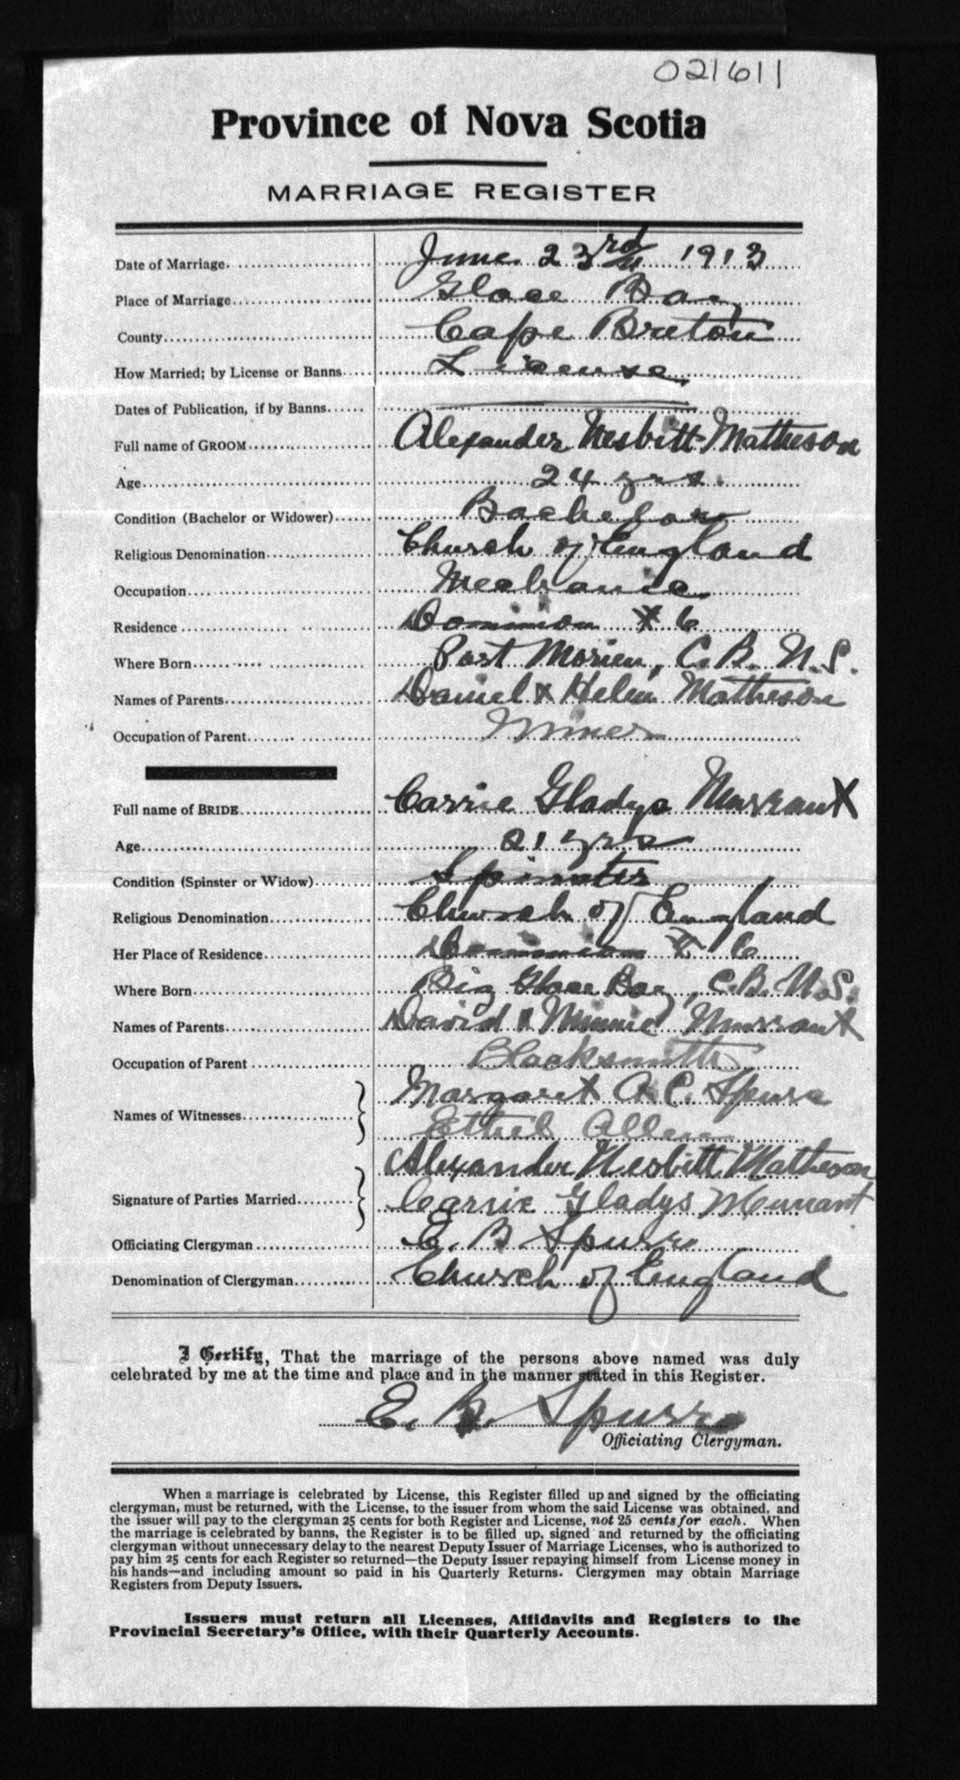 021611
Province of Nova Scotia
MARRIAGE REGISTER
Date of Marriage. June 23rd 1913
Place of Marriage Glace Bay
County Cape Breton
How Married; by License or Banns License
Dates of Publication, if by Banns
Full name of GROOM Alexander Nesbitt Matheson
Age 24 yrs.
Condition (Bachelor or Widower) Bachelor
Religious Denomination Church of England
Occupation Mechanic
Residence Dominion # 6
Where Born Port Morien, C.B. N.S.
Names of Parents Daniel & Helen Matheson
Occupation of Parent Miner
Full name of BRIDE Carrie Gladys Murrant
Age 21 yrs
Condition (Spinster or Widow) Spinster
Religious Denomination Church of England
Her Place of Residence Dominion # 6
Where Born Big Glace Bay, C.B. N.S.
Names of Parents David & Minnie Murrant
Occupation of Parent Blacksmith
Names of Witnesses Margaret A. C. Spurr
Ethel Allen
Signature of Parties Married Alexander Nesbitt Matheson
Carrie Gladys Murrant
Officiating Clergyman E. B. Spurr
Denomination of Clergyman Church of England
I Certify, That the marriage of the persons above named was duly
celebrated by me at the time and place and in the manner stated in this Register.
E. B. Spurr
Officiating Clergyman.
When a marriage is celebrated by License, this Register filled up and signed by the officiating
clergyman, must be returned, with the License, to the issuer from whom the said License was obtained, and
the issuer will pay to the clergyman 25 cents for both Register and License, not 25 cents for each. When
the marriage is celebrated by banns, the Register is to be filled up, signed and returned by the officiating
clergyman without unnecessary delay to the nearest Deputy Issuer of Marriage Licenses, who is authorized to
pay him 25 cents for each Register so returned—the Deputy Issuer repaying himself from License money in
his hands—and including amount so paid in his Quarterly Returns. Clergymen may obtain Marriage
Registers from Deputy Issuers.
Issuers must return all Licenses, Affidavits and Registers to the
Provincial Secretary's Office, with their Quarterly Accounts.